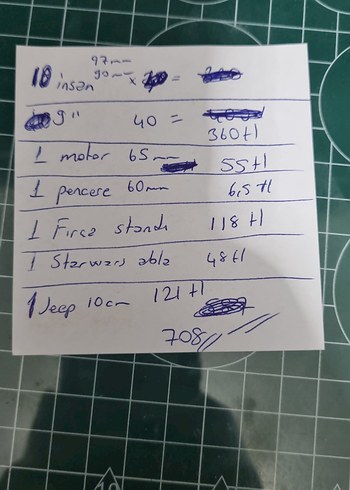 97mm
10 insan 90mm x =
9" 40 =
360tl
1 motor 65mm 55tl
1 pencere 60mm 6,5 tl
1 Firça standı 118 tl
1 Starwars abla 48tl
1 Jeep 10cm 121 tl
708//